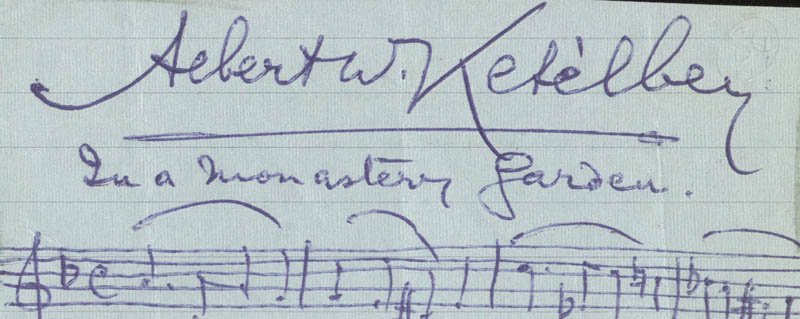 Albert W. Ketèlbey
In a Monastery Garden.